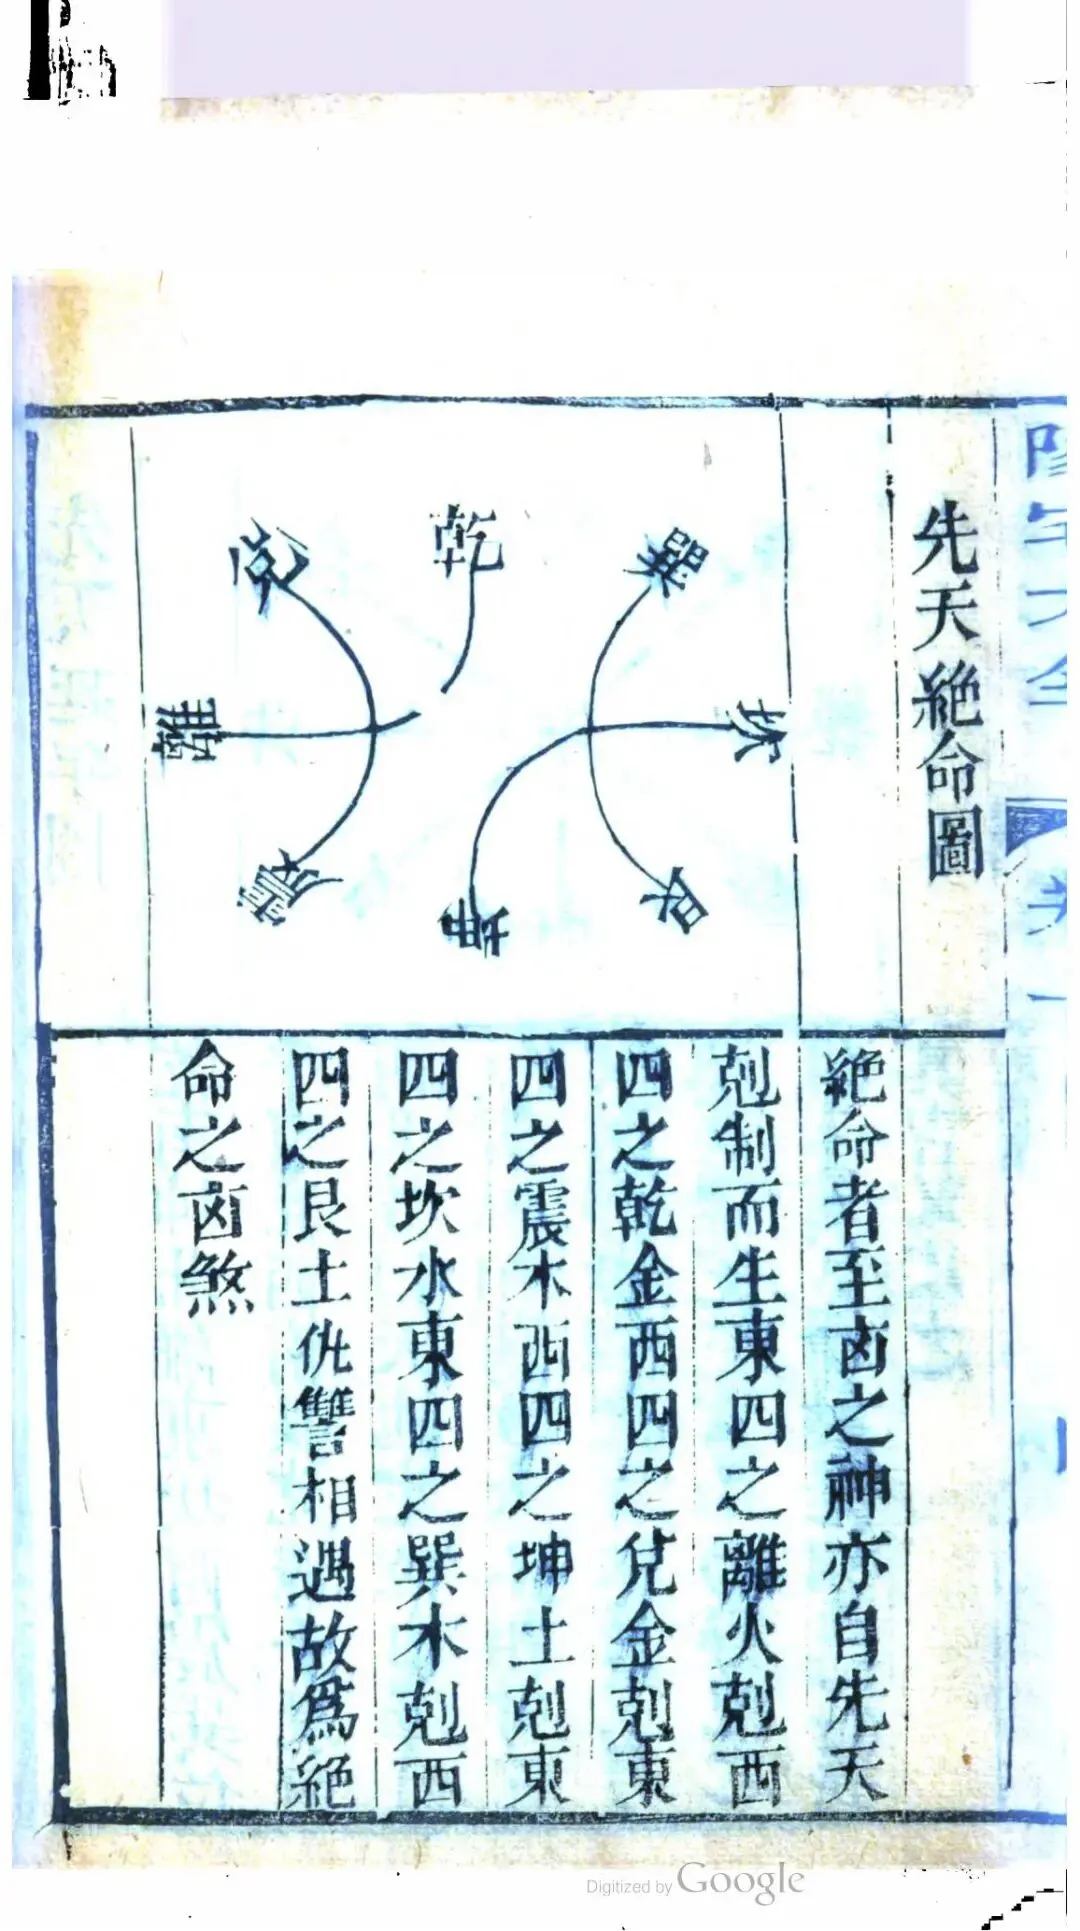 陽宅大全
卷一
先天絶命圖
乾
兌
離
震
巽
坎
艮
坤
絶命者至凶之神亦自先天
剋制而生東四之離火剋西
四之乾金西四之兌金剋東
四之震木西四之坤土剋東
四之坎水東四之巽木剋西
四之艮土仇讐相遇故爲絶
命之凶煞
Digitized by Google